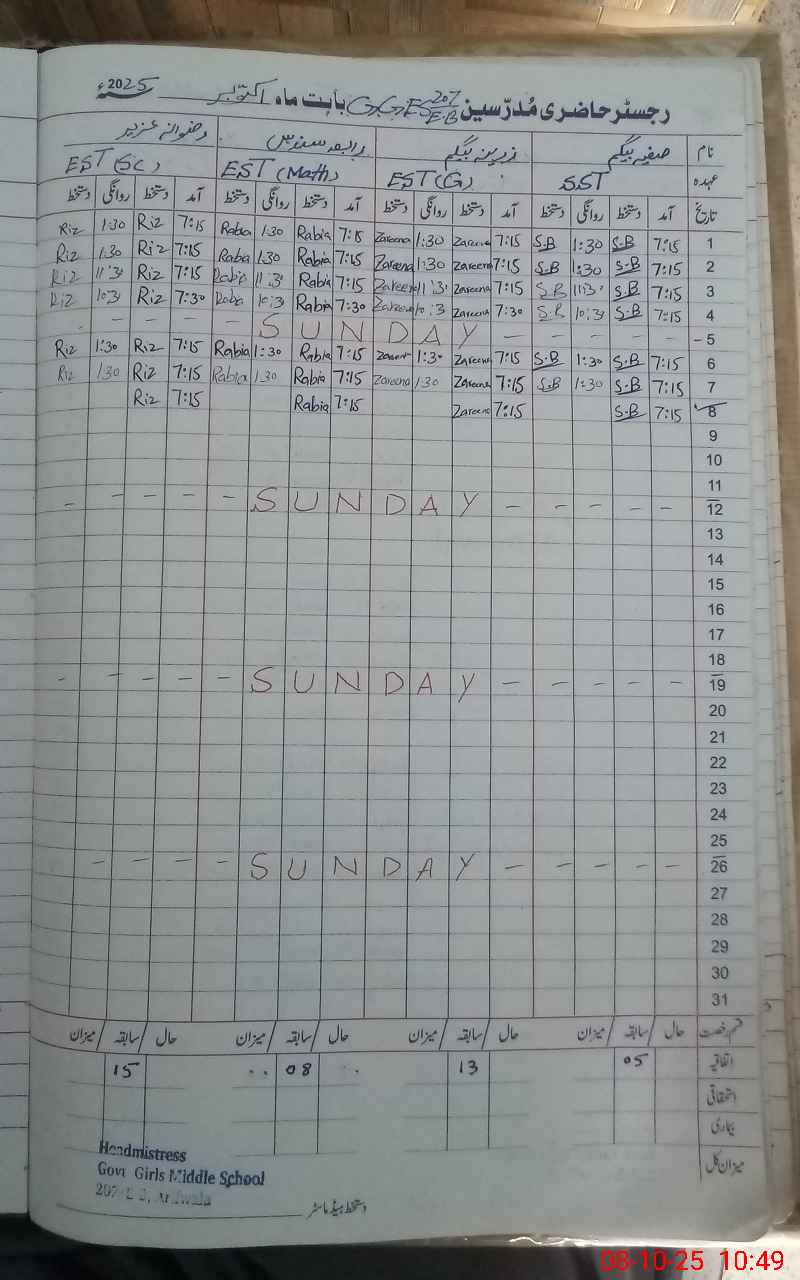 رجسٹر حاضری مُدرّسین GGES 207/EB بابت ماہ اکتوبر 2025ء
نام صفیہ بیگم زرینہ بیگم رابعہ سندس رضوانہ عزیز
عہدہ SST EST (G) EST (Math) EST (Sc)
تاریخ آمد دستخط روانگی دستخط آمد دستخط روانگی دستخط آمد دستخط روانگی دستخط آمد دستخط روانگی دستخط
1 7:15 S.B 1:30 S.B 7:15 Zareena 1:30 Zareena 7:15 Rabia 1:30 Rabia 7:15 Riz 1:30 Riz
2 7:15 S.B 1:30 S.B 7:15 Zareena 1:30 Zareena 7:15 Rabia 1:30 Rabia 7:15 Riz 1:30 Riz
3 7:15 S.B 11:3 S.B 7:15 Zareena 11:3 Zareena 7:15 Rabia 11:3 Rabia 7:15 Riz 11:3 Riz
4 7:15 S.B 10:3 S.B 7:30 Zareena 10:3 Zareena 7:30 Rabia 10:3 Rabia 7:30 Riz 10:3 Riz
5 - - - - - SUNDAY - - - - -
6 7:15 S.B 1:30 S.B 7:15 Zareena 1:30 Zareena 7:15 Rabia 1:30 Rabia 7:15 Riz 1:30 Riz
7 7:15 S.B 1:30 S.B 7:15 Zareena 1:30 Zareena 7:15 Rabia 1:30 Rabia 7:15 Riz 1:30 Riz
8 7:15 S.B 7:15 Zareena 7:15 Rabia 7:15 Riz
9
10
11
12 - - - - - SUNDAY - - - - -
13
14
15
16
17
18
19 - - - - - SUNDAY - - - - -
20
21
22
23
24
25
26 - - - - - SUNDAY - - - - -
27
28
29
30
31
قسم رخصت حال / سابقہ / میزان حال / سابقہ / میزان حال / سابقہ / میزان حال / سابقہ / میزان
اتفاقیہ 05 13 08 15
استحقاقی
بیماری
میزان کل
Headmistress
Govt Girls Middle School
207 E.B, Arifwala
دستخط ہیڈ ماسٹر
08-10-25 10:49